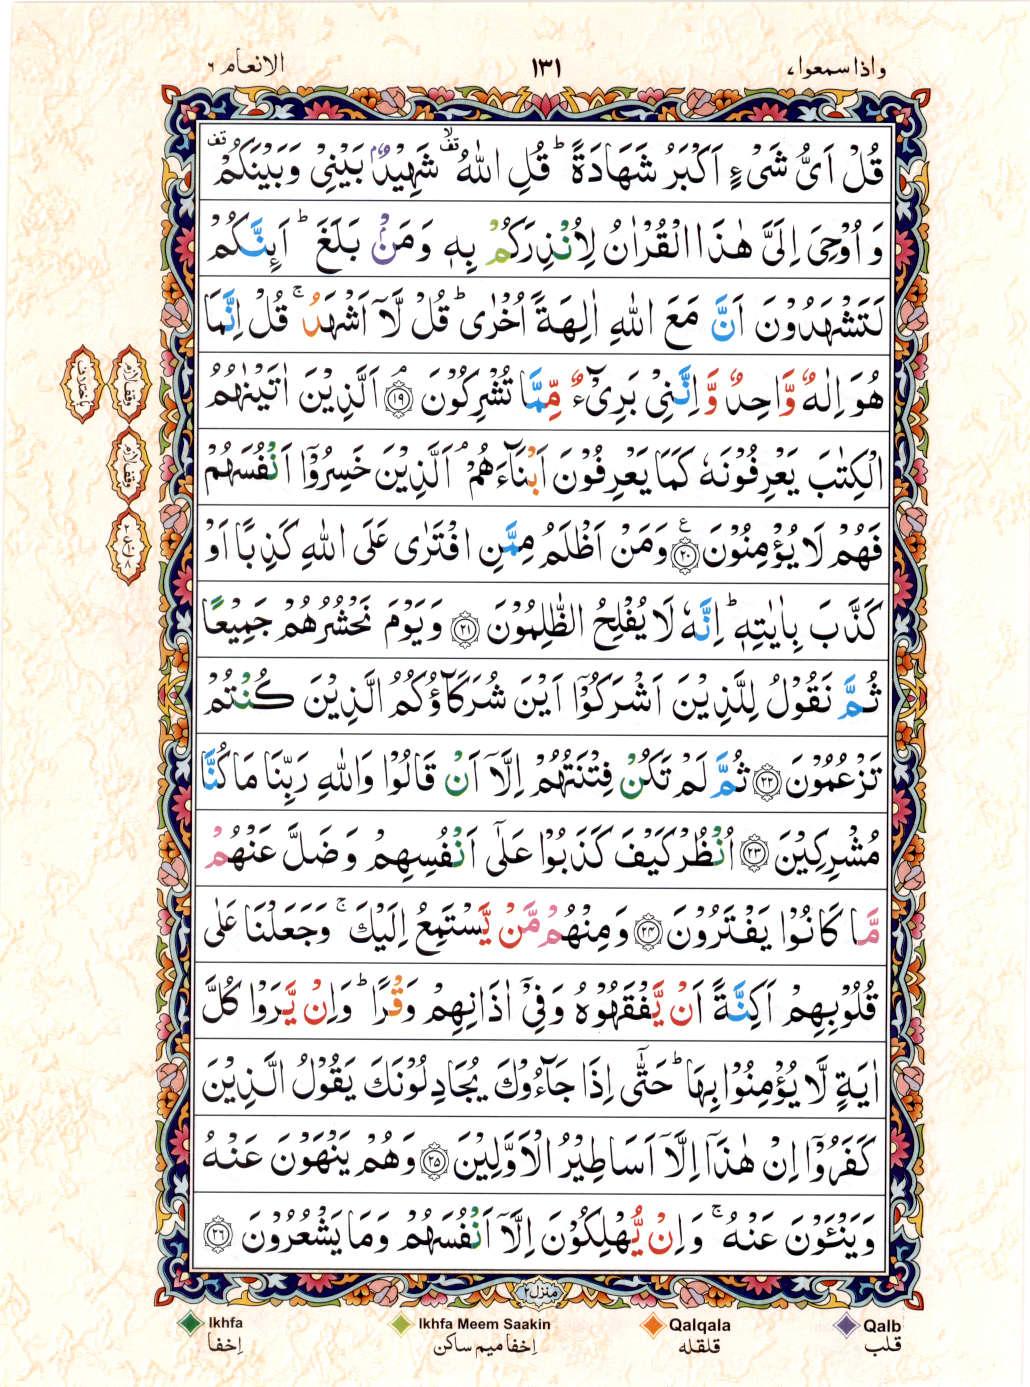 واذا سمعوا،
١٣١
الانعام ٦
قُلْ اَیُّ شَیْءٍ اَكْبَرُ شَهَادَةً ؕ قُلِ اللّٰهُ ۙ۫ شَهِیْدٌۢ بَیْنِیْ وَ بَیْنَكُمْ ۫
وَ اُوْحِیَ اِلَیَّ هٰذَا الْقُرْاٰنُ لِاُنْذِرَكُمْ بِهٖ وَ مَنْۢ بَلَغَ ؕ اَىِٕنَّكُمْ
لَتَشْهَدُوْنَ اَنَّ مَعَ اللّٰهِ اٰلِهَةً اُخْرٰی ؕ قُلْ لَّاۤ اَشْهَدُ ۚ قُلْ اِنَّمَا
هُوَ اِلٰهٌ وَّاحِدٌ وَّ اِنَّنِیْ بَرِیْٓءٌ مِّمَّا تُشْرِكُوْنَ ۘ ﴿۱۹﴾ اَلَّذِیْنَ اٰتَیْنٰهُمُ
الْكِتٰبَ یَعْرِفُوْنَهٗ كَمَا یَعْرِفُوْنَ اَبْنَآءَهُمْ ۘ اَلَّذِیْنَ خَسِرُوْۤا اَنْفُسَهُمْ
فَهُمْ لَا یُؤْمِنُوْنَ ﴿۲۰﴾ ع وَ مَنْ اَظْلَمُ مِمَّنِ افْتَرٰی عَلَی اللّٰهِ كَذِبًا اَوْ
كَذَّبَ بِاٰیٰتِهٖ ؕ اِنَّهٗ لَا یُفْلِحُ الظّٰلِمُوْنَ ﴿۲۱﴾ وَ یَوْمَ نَحْشُرُهُمْ جَمِیْعًا
ثُمَّ نَقُوْلُ لِلَّذِیْنَ اَشْرَكُوْۤا اَیْنَ شُرَكَآؤُكُمُ الَّذِیْنَ كُنْتُمْ
تَزْعُمُوْنَ ﴿۲۲﴾ ثُمَّ لَمْ تَكُنْ فِتْنَتُهُمْ اِلَّاۤ اَنْ قَالُوْا وَ اللّٰهِ رَبِّنَا مَا كُنَّا
مُشْرِكِیْنَ ﴿۲۳﴾ اُنْظُرْ كَیْفَ كَذَبُوْا عَلٰۤی اَنْفُسِهِمْ وَ ضَلَّ عَنْهُمْ
مَّا كَانُوْا یَفْتَرُوْنَ ﴿۲۴﴾ وَ مِنْهُمْ مَّنْ یَّسْتَمِعُ اِلَیْكَ ۚ وَ جَعَلْنَا عَلٰی
قُلُوْبِهِمْ اَكِنَّةً اَنْ یَّفْقَهُوْهُ وَ فِیْۤ اٰذَانِهِمْ وَقْرًا ؕ وَ اِنْ یَّرَوْا كُلَّ
اٰیَةٍ لَّا یُؤْمِنُوْا بِهَا ؕ حَتّٰۤی اِذَا جَآءُوْكَ یُجَادِلُوْنَكَ یَقُوْلُ الَّذِیْنَ
كَفَرُوْۤا اِنْ هٰذَاۤ اِلَّاۤ اَسَاطِیْرُ الْاَوَّلِیْنَ ﴿۲۵﴾ وَ هُمْ یَنْهَوْنَ عَنْهُ
وَ یَنْـَٔوْنَ عَنْهُ ۚ وَ اِنْ یُّهْلِكُوْنَ اِلَّاۤ اَنْفُسَهُمْ وَ مَا یَشْعُرُوْنَ ﴿۲۶﴾
منزل ٢
Ikhfa
Ikhfa Meem Saakin
Qalqala
Qalb
اِخفا
اِخفا میم ساکن
قلقله
قلب